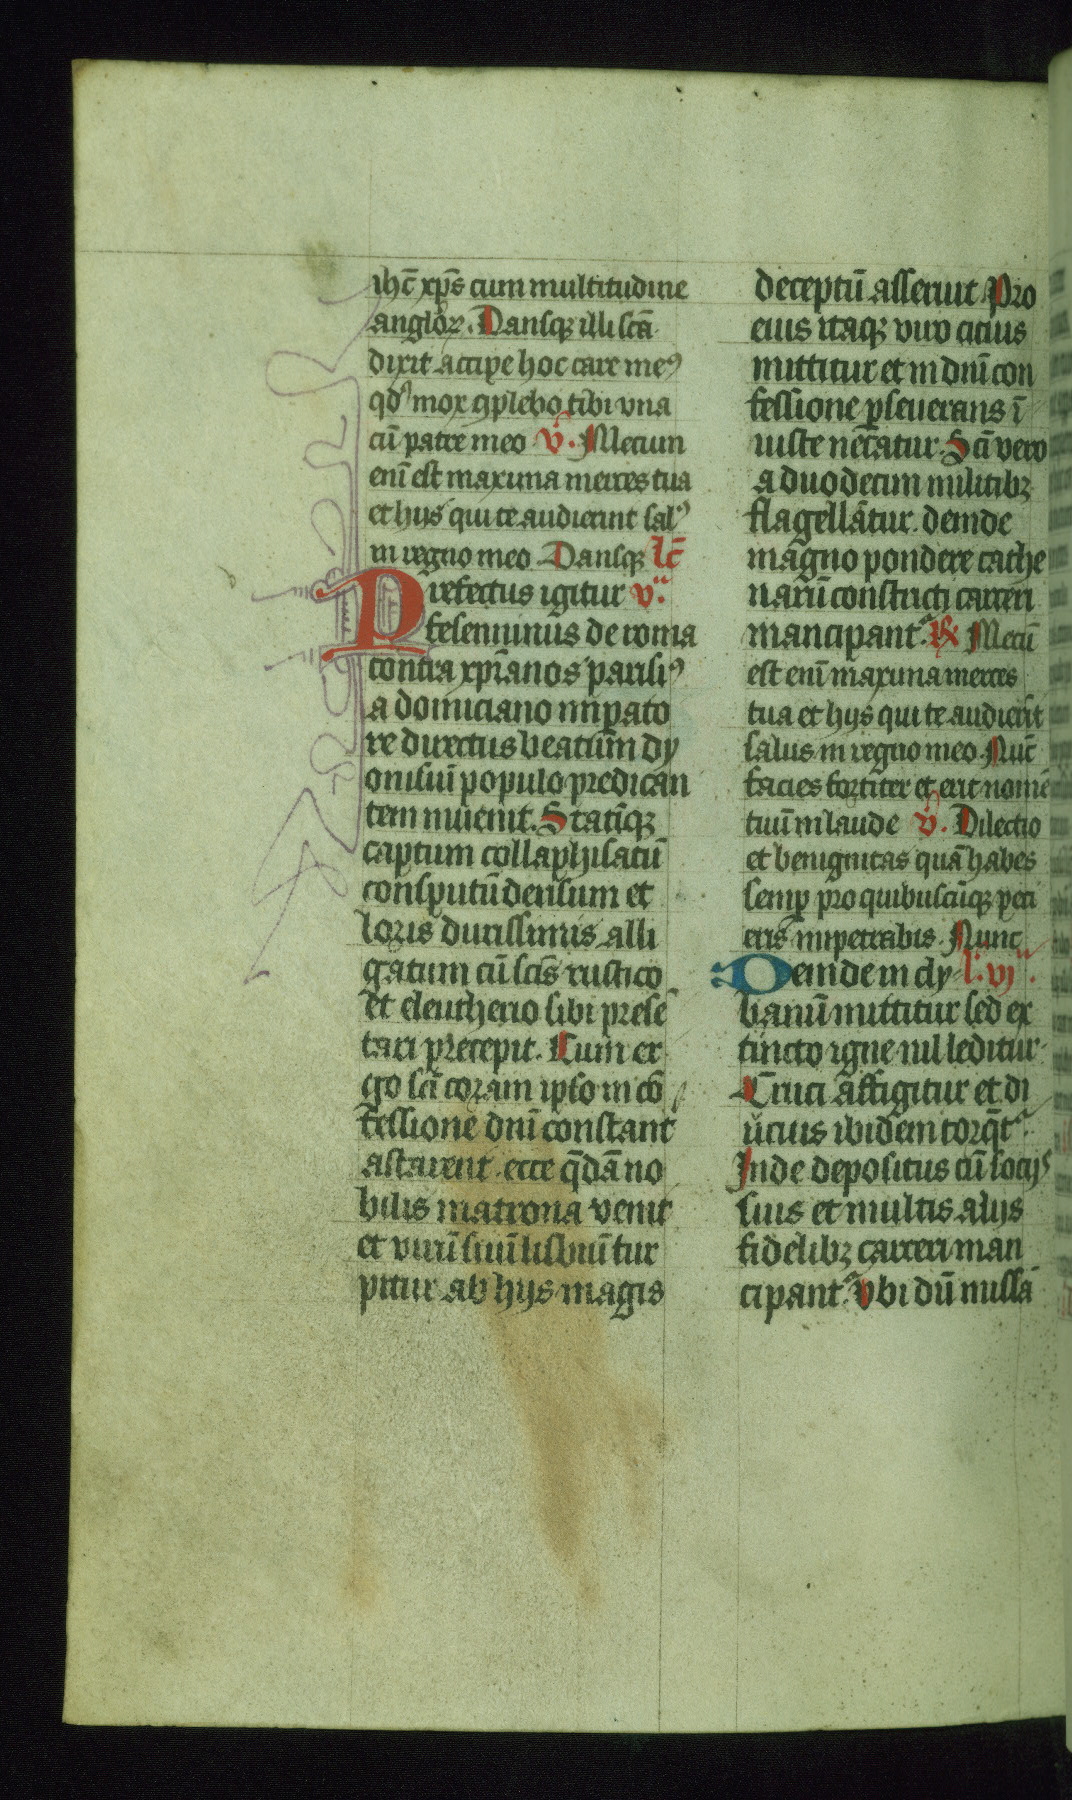 ihc̄ xp̄s cum multitudine
anglor̄ꝝ. Dansqꝫ illi scā
dixit accipe hoc care meꝰ
qd' mox ꝯplebo tibi vna
cū patre meo v̄. Mecum
enī est maxima merces tua
et hijs qui te audierint salꝰ
in regno meo. Dansqꝫ lc̄
Prefectus igitur v.ᵃ
fescenninus de roma
contra xp̄ianos parisiꝰ
a domiciano imꝑato
re directus beatum dy
onisiū populo predican
tem inuenit. Statīqꝫ
captum collaphisatū
consputū derisum et
loris durissimis alli
gatum cū scīs rustico
et eleutherio sibi presē
tari precepit. Cum er
go scī coram ipso in cō
fessione dnī constant
astarent. ecce q̄dā no
bilis matrona venit
et virū suū lisbiū tur
piter ab hijs magis
deceptū asseruit Pro
eius itaqꝫ viro citius
mittitur et in dnī con
fessione ꝑseuerans ī
iuste necatur. Scī vero
a duodecim militibꝫ
flagellātur. deinde
magno pondere cathe
narū constricti carceri
mancipantᵃ. ℟ Mecū
est enī maxima merces
tua et hijs qui te audierīt
salus in regno meo. Nūc
facies fortiter et erit nomē
tuū in laude v̄. Dilectio
et benignitas quā habes
semꝑ pro quibuscūqꝫ peti
eris impetrabis. Nunc
Deinde in cly l. vjᵃ.
banū mittitur sed ex
tincto igne nil leditur
Cruci affigitur et di
ucius ibidem torq̄tᵃ.
Inde depositus cū socijs
suis et multis alijs
fidelibꝫ carceri man
cipantᵃ. Vbi dū missā